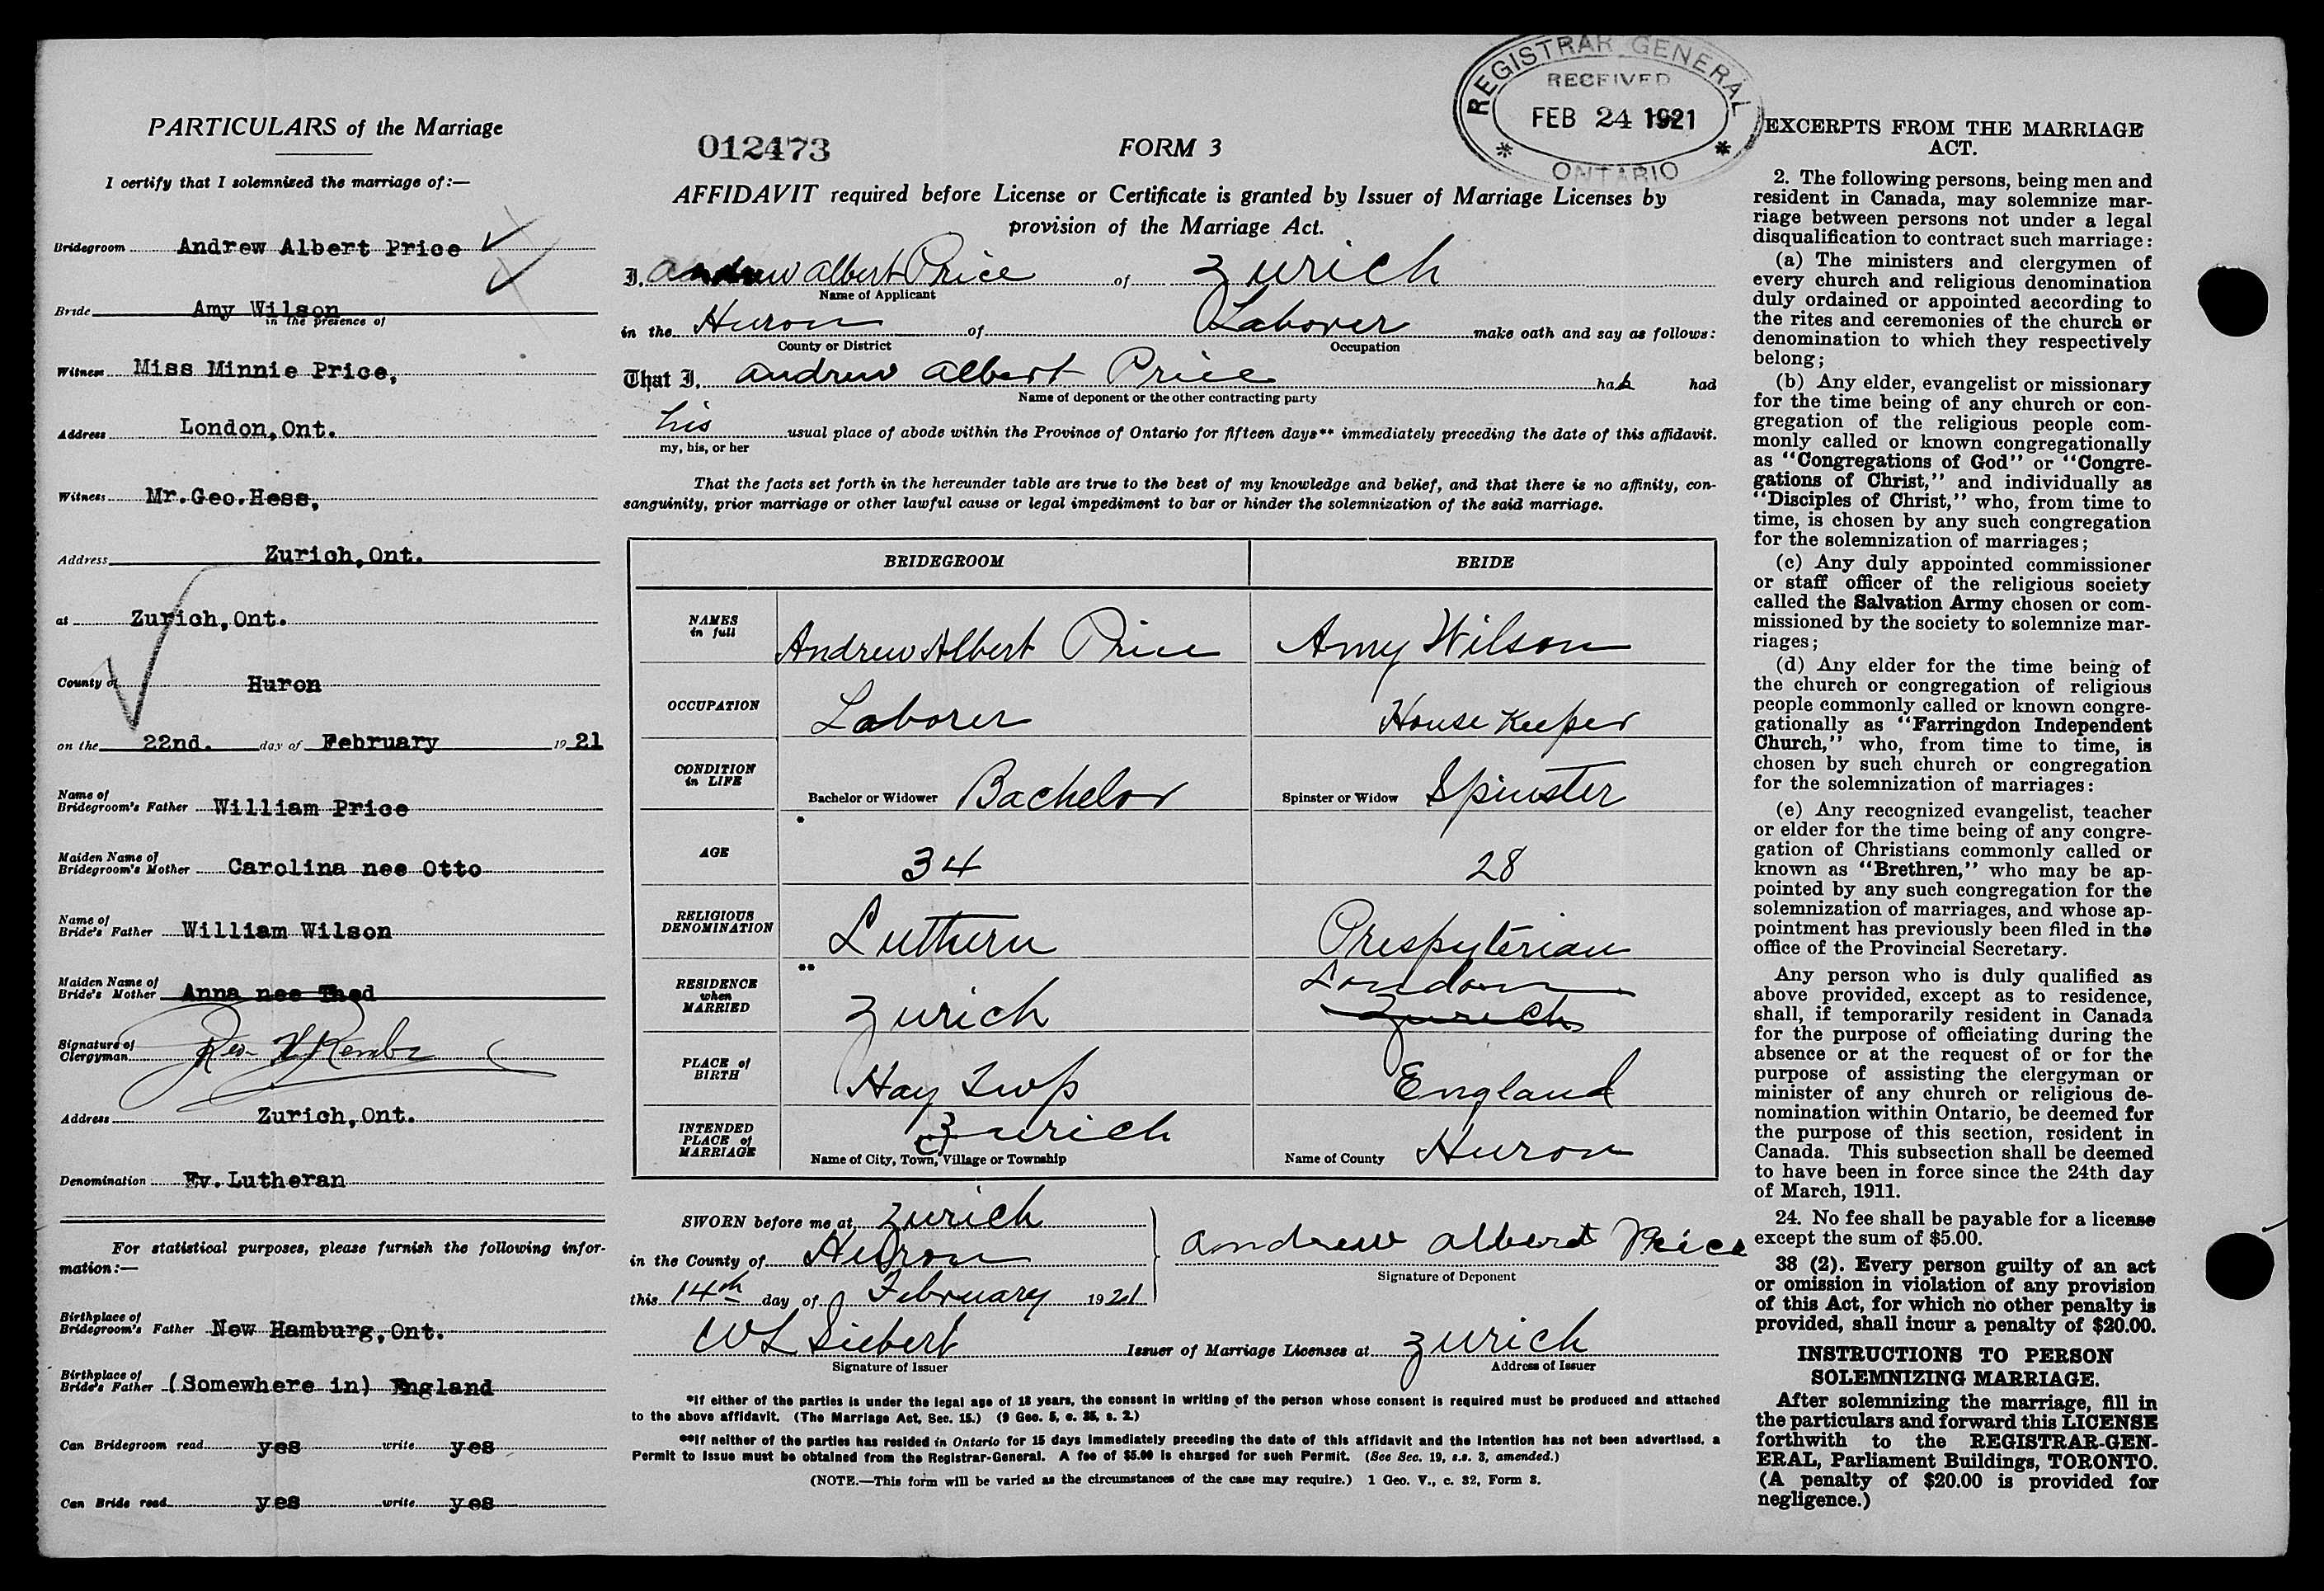 PARTICULARS of the Marriage
I certify that I solemnized the marriage of:—
Bridegroom Andrew Albert Price
Bride Amy Wilson
in the presence of
Witness Miss Minnie Price,
Address London, Ont.
Witness Mr. Geo. Hess,
Address Zurich, Ont.
at Zurich, Ont.
County of Huron
on the 22nd. day of February 1921
Name of
Bridegroom's Father William Price
Maiden Name of
Bridegroom's Mother Carolina nee Otto
Name of
Bride's Father William Wilson
Maiden Name of
Bride's Mother Anna nee Thod
Signature of
Clergyman Rev
Address Zurich, Ont.
Denomination Ev. Lutheran
For statistical purposes, please furnish the following infor-
mation:—
Birthplace of
Bridegroom's Father New Hamburg, Ont.
Birthplace of
Bride's Father (Somewhere in) England
Can Bridegroom read yes write yes
Can Bride read yes write yes
012473
FORM 3
REGISTRAR GENERAL
RECEIVED
FEB 24 1921
ONTARIO
AFFIDAVIT required before License or Certificate is granted by Issuer of Marriage Licenses by
provision of the Marriage Act.
I, Andrew Albert Price of Zurich
Name of Applicant
in the Huron of Laborer make oath and say as follows:
County or District Occupation
That I, Andrew Albert Price has had
Name of deponent or the other contracting party
his usual place of abode within the Province of Ontario for fifteen days** immediately preceding the date of this affidavit.
my, his, or her
That the facts set forth in the hereunder table are true to the best of my knowledge and belief, and that there is no affinity, con-
sanguinity, prior marriage or other lawful cause or legal impediment to bar or hinder the solemnization of the said marriage.
BRIDEGROOM BRIDE
NAMES
in full Andrew Albert Price Amy Wilson
OCCUPATION Laborer House Keeper
CONDITION
in LIFE Bachelor or Widower Bachelor Spinster or Widow Spinster
*
AGE 34 28
RELIGIOUS
DENOMINATION Luthern Prespyterian
**
RESIDENCE
when
MARRIED Zurich London Zurich
PLACE of
BIRTH Hay Twp England
INTENDED
PLACE of
MARRIAGE Zurich Huron
Name of City, Town, Village or Township Name of County
SWORN before me at Zurich
in the County of Huron
this 14th day of February 1921
Andrew Albert Price
Signature of Deponent
W L Siebert Issuer of Marriage Licenses at Zurich
Signature of Issuer Address of Issuer
*If either of the parties is under the legal age of 18 years, the consent in writing of the person whose consent is required must be produced and attached
to the above affidavit. (The Marriage Act, Sec. 15.) (9 Geo. 5, c. 35, s. 2.)
**If neither of the parties has resided in Ontario for 15 days immediately preceding the date of this affidavit and the intention has not been advertised, a
Permit to issue must be obtained from the Registrar-General. A fee of $5.00 is charged for such Permit. (See Sec. 19, s.s. 3, amended.)
(NOTE.—This form will be varied as the circumstances of the case may require.) 1 Geo. V., c. 32, Form 3.
EXCERPTS FROM THE MARRIAGE
ACT.
2. The following persons, being men and
resident in Canada, may solemnize mar-
riage between persons not under a legal
disqualification to contract such marriage:
(a) The ministers and clergymen of
every church and religious denomination
duly ordained or appointed according to
the rites and ceremonies of the church or
denomination to which they respectively
belong;
(b) Any elder, evangelist or missionary
for the time being of any church or con-
gregation of the religious people com-
monly called or known congregationally
as "Congregations of God" or "Congre-
gations of Christ," and individually as
"Disciples of Christ," who, from time to
time, is chosen by any such congregation
for the solemnization of marriages;
(c) Any duly appointed commissioner
or staff officer of the religious society
called the Salvation Army chosen or com-
missioned by the society to solemnize mar-
riages;
(d) Any elder for the time being of
the church or congregation of religious
people commonly called or known congre-
gationally as "Farringdon Independent
Church," who, from time to time, is
chosen by such church or congregation
for the solemnization of marriages:
(e) Any recognized evangelist, teacher
or elder for the time being of any congre-
gation of Christians commonly called or
known as "Brethren," who may be ap-
pointed by any such congregation for the
solemnization of marriages, and whose ap-
pointment has previously been filed in the
office of the Provincial Secretary.
Any person who is duly qualified as
above provided, except as to residence,
shall, if temporarily resident in Canada
for the purpose of officiating during the
absence or at the request of or for the
purpose of assisting the clergyman or
minister of any church or religious de-
nomination within Ontario, be deemed for
the purpose of this section, resident in
Canada. This subsection shall be deemed
to have been in force since the 24th day
of March, 1911.
24. No fee shall be payable for a license
except the sum of $5.00.
38 (2). Every person guilty of an act
or omission in violation of any provision
of this Act, for which no other penalty is
provided, shall incur a penalty of $20.00.
INSTRUCTIONS TO PERSON
SOLEMNIZING MARRIAGE.
After solemnizing the marriage, fill in
the particulars and forward this LICENSE
forthwith to the REGISTRAR-GEN-
ERAL, Parliament Buildings, TORONTO.
(A penalty of $20.00 is provided for
negligence.)